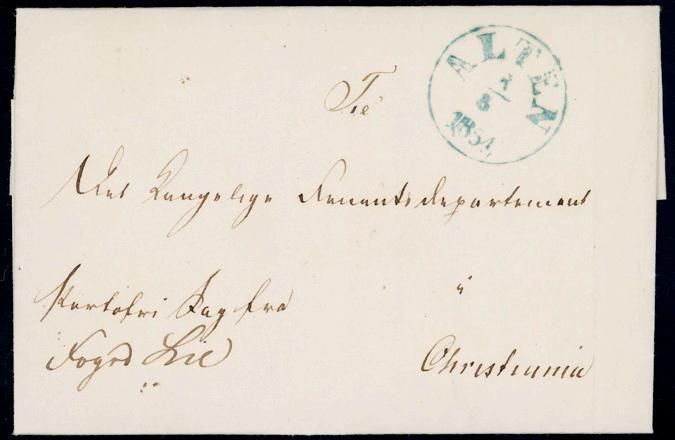 ALTEN
8
1854
Til
Det Kongelige Finants departement
i
Portofri Sag fra
Foged Lie
Christiania